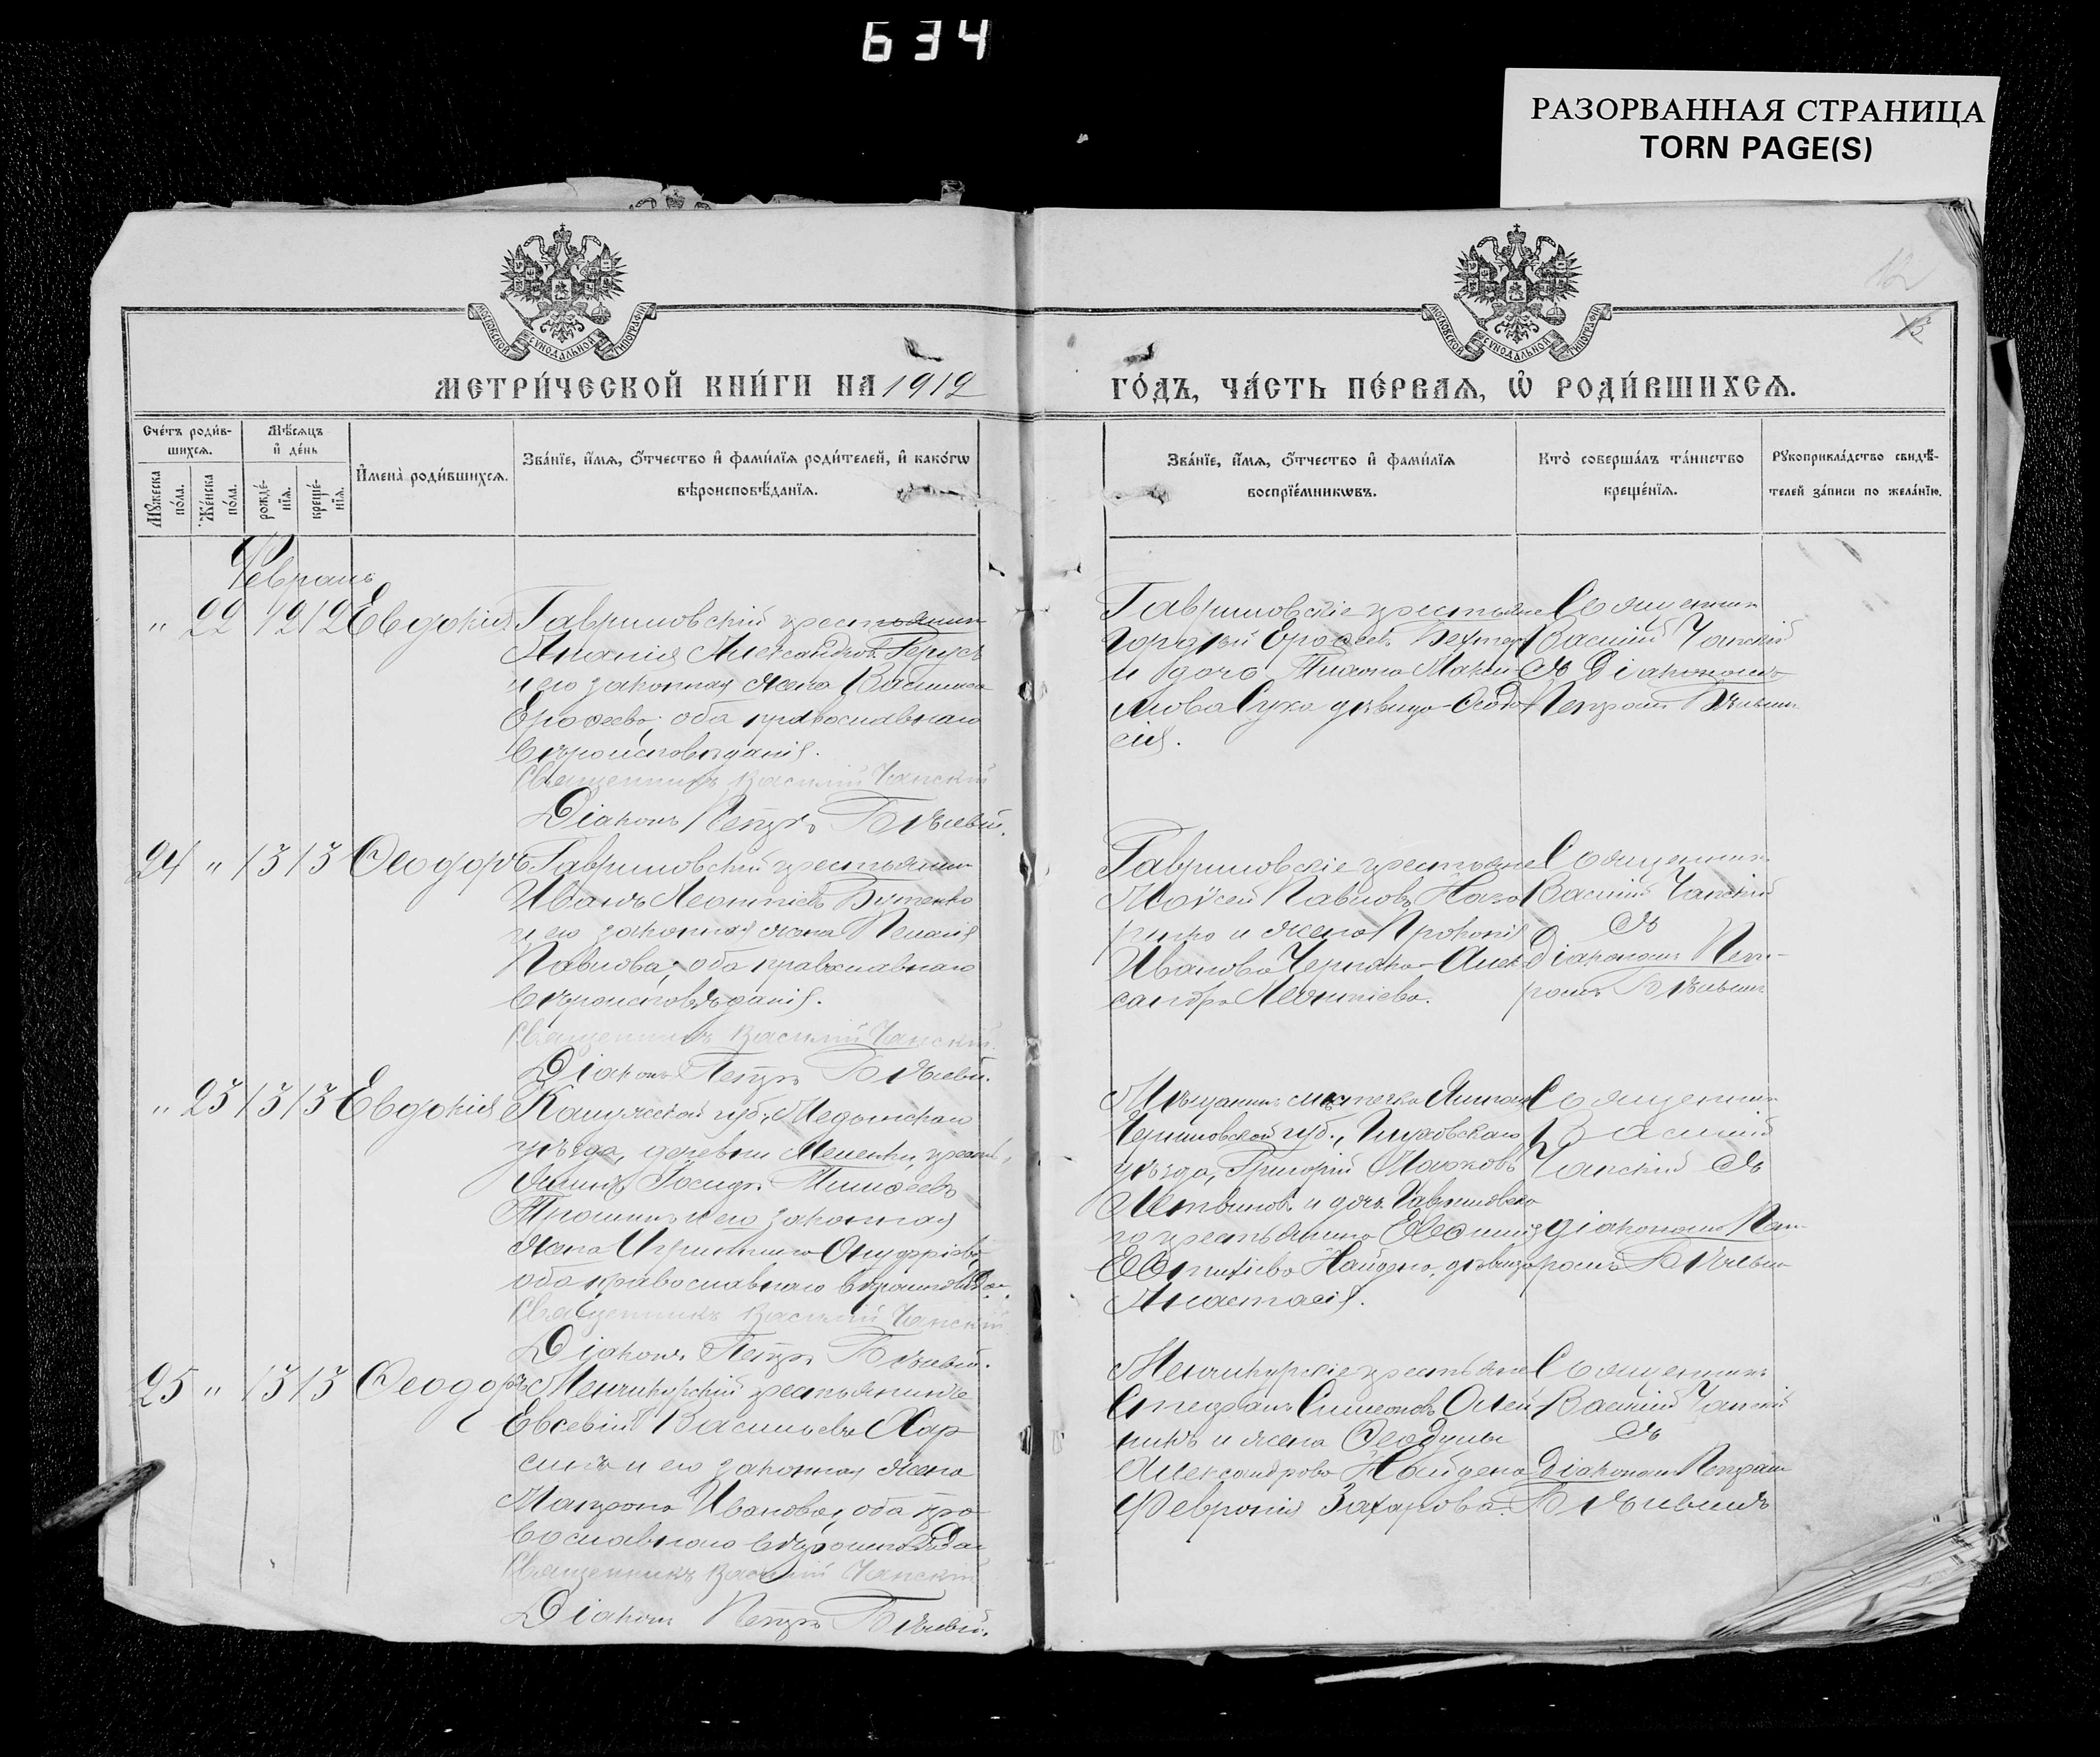 634
РАЗОРВАННАЯ СТРАНИЦА
TORN PAGE(S)
12
13
МОСКОВСКОЙ СѴНОДАЛЬНОЙ ТИПОГРАФІИ
МОСКОВСКОЙ СѴНОДАЛЬНОЙ ТИПОГРАФІИ
МЕТРИ́ЧЕСКОЙ КНИ́ГИ НА 1912
ГО́ДЪ, ЧА́СТЬ ПЕ́РВАЯ, Ѡ РОДИ́ВШИХСЯ.
Сче́тъ роди́в-
шихся.
Мѣ́сяцъ
и де́нь
Мꙋ́жеска по́ла.
Же́нска по́ла.
рожде́-
нїя.
креще́-
нїя.
Имена̀ роди́вшихся.
Зва́нїе, и́мя, ѻ҆́тчество и фами́лїя роди́телей, и како́гѡ
вѣроисповѣ́данїя.
Зва́нїе, и́мя, ѻ҆́тчество и фами́лїя
воспрїе́мникѡвъ.
Кто̀ соверша́лъ та́инство
креще́нїя.
Рꙋкоприкла́дство свидѣ́-
телей за́писи по жела́нїю.
Февраль
" 22 12 12 Евдокія
Гавриловскій крестьянинъ
Ананія Александровъ Герусъ
и его законная жена Василиса
Ерофеева, оба православнаго
вѣроисповѣданія.
Священникъ Василій Чанскій
Діаконъ Петръ Бѣлевій.
Гавриловскіе крестьяне
Гордѣй Ерофеевъ
и дочь
дѣвица Ѳеодо
сія.
Священникъ
Василій Чанскій
съ Діакономъ
Петромъ Бѣлевимъ
24 " 13 13 Ѳеодоръ
Гавриловскій крестьянинъ
Иванъ Леонтіевъ Бутенко
и его законная жена Пелагія
Павлова, оба православнаго
вѣроисповѣданія.
Священникъ Василій Чанскій.
Діаконъ Петръ Бѣлевій.
Гавриловскіе крестьяне
Моѵсей Павловъ
и жена Прокопія
Иванова Алек
сандра Леонтіева.
Священникъ
Василій Чанскій
съ
Діакономъ Пет-
ромъ Бѣлевимъ
" 23 13 13 Евдокія
Калужской губ., Медынскаго
уѣзда, деревни крест
янинъ Іосифъ Тимофеевъ
Трошинъ и его законная
жена Онуфріева,
оба православнаго вѣроисповѣда.
Священникъ Василій Чанскій
Діаконъ Петръ Бѣлевій.
Мѣщанинъ мѣстечка Ямполя
Черниговской губ., Глуховскаго
уѣзда, Григорій
Литвиновъ и дочь Гавриловска
го крестьянина
Найдена, дѣвица
Анастасія.
Священникъ
Василій
Чанскій съ
діакономъ Пет-
ромъ Бѣлевимъ
25 " 13 13 Ѳеодоръ
Менчикурскій крестьянинъ
Евсевій Васильевъ Хар
и его законная жена
Матрона Иванова, оба пра
вославнаго вѣроисповѣда
Священникъ Василій Чанскій
Діаконъ Петръ Бѣлевій.
Менчикурскіе крестьяне
Стефанъ Симеоновъ Олей
никъ и жена
Александрова Найдена
Февронія Захарова.
Священникъ
Василій Чанскій
съ
Діакономъ Петромъ
Бѣлевимъ